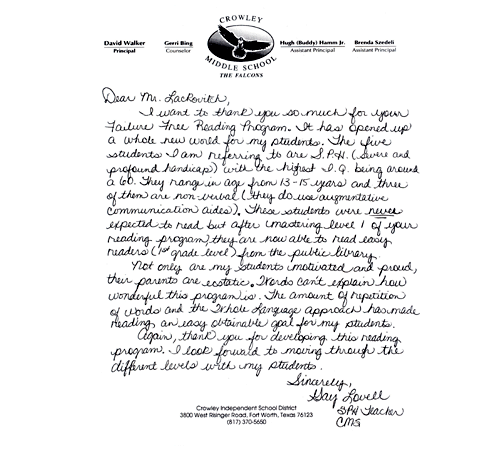 CROWLEY
MIDDLE SCHOOL
THE FALCONS
David Walker
Principal
Gerri Bing
Counselor
Hugh (Buddy) Hamm Jr.
Assistant Principal
Brenda Szedeli
Assistant Principal
Dear Mr. Lockovitch,
I want to thank you so much for your
Failure Free Reading Program. It has opened up
a whole new world for my students. The five
students I am referring to are S.P.H. (severe and
profound handicap) with the highest I.Q. being around
a 60. They range in age from 13-15 years and three
of them are non-verbal (they do use augmentative
communication aides). These students were never
expected to read but after mastering level 1 of your
reading program, they are now able to read easy
readers (1st grade level) from the public library.
Not only are my students motivated and proud,
their parents are ecstatic. Words can't explain how
wonderful this program is. The amount of repetition
of words and the Whole Language approach has made
reading an easy obtainable goal for my students.
Again, thank you for developing this reading
program. I look forward to moving through the
different levels with my students.
Sincerely,
Gay Lovell
SPH Teacher
CMS
Crowley Independent School District
3800 West Risinger Road, Fort Worth, Texas 76123
(817) 370-5650